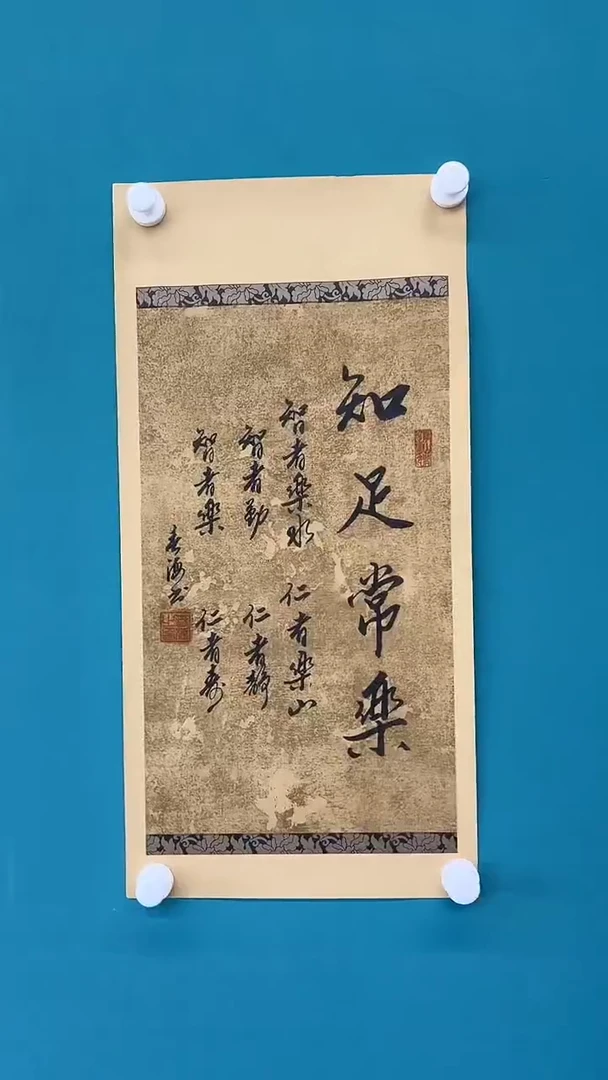 知足常樂
智者樂水 仁者樂山
智者動 仁者靜
智者樂 仁者壽
春海书